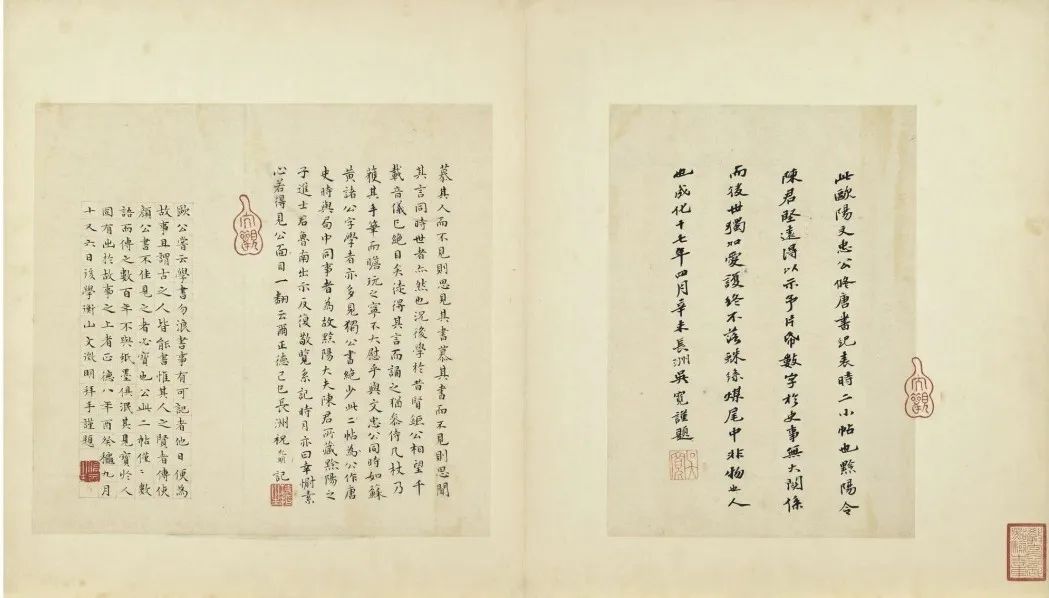 此歐陽文忠公脩唐書紀表時二小帖也黟陽令
陳君堅遠得以示予片紙數字於史事無大關係
而後世獨加愛護終不落蛛絲煤尾中非物也人
也成化十七年四月辛未長洲吳寬謹題
慕其人而不見則思見其書慕其書而不見則思聞
其言同時世者亦然也況後學於昔賢絕公相望千
載音儀已絕目矣徒得其言而誦之猶忝侍几杖乃
獲其手筆而瞻玩之寧不大慰乎與文忠公同時如蘇
黃諸公字學者亦多見獨公書絕少此二帖為公作唐
史時與局中同事者為故黟陽大夫陳君所藏黟陽之
子進士君魯南出示反復敬覽系記時月亦曰幸慰素
心若得見公面目一翻云爾正德己巳長洲祝允明記
歐公嘗云學書勿浪書事有可記者他日便為
故事且謂古之人皆能書惟其人之賢者傳使
顏公書不佳見之者必寶也公此二帖僅二數
語而傳之數百年不與紙墨俱泯其見寶於人
固有出於故事之上者正德八年酉癸九月
十又六日後學衡山文徵明拜手謹題